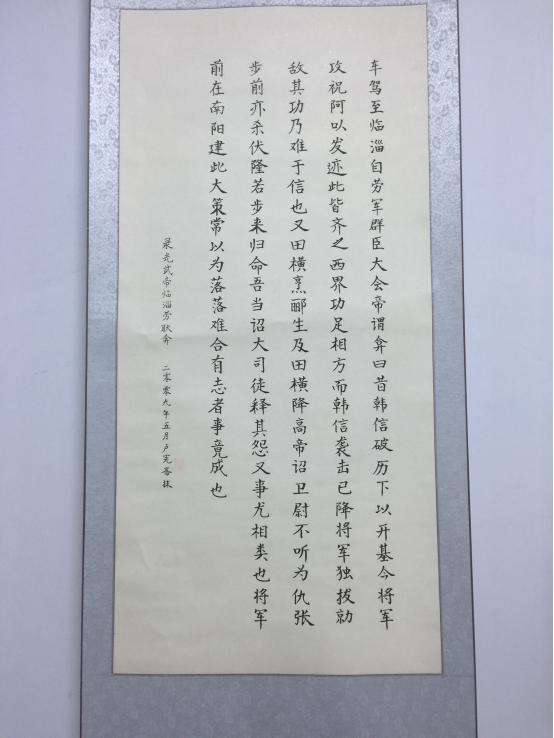 车驾至临淄自劳军群臣大会帝谓弇曰昔韩信破历下以开基今将军
攻祝阿以发迹此皆齐之西界功足相方而韩信袭击已降将军独拔勍
敌其功乃难于信也又田横烹郦生及田横降高帝诏卫尉不听为仇张
步前亦杀伏隆若步来归命吾当诏大司徒释其怨又事尤相类也将军
前在南阳建此大策常以为落落难合有志者事竟成也
录光武帝临淄劳耿弇 二零零九年五月卢宪